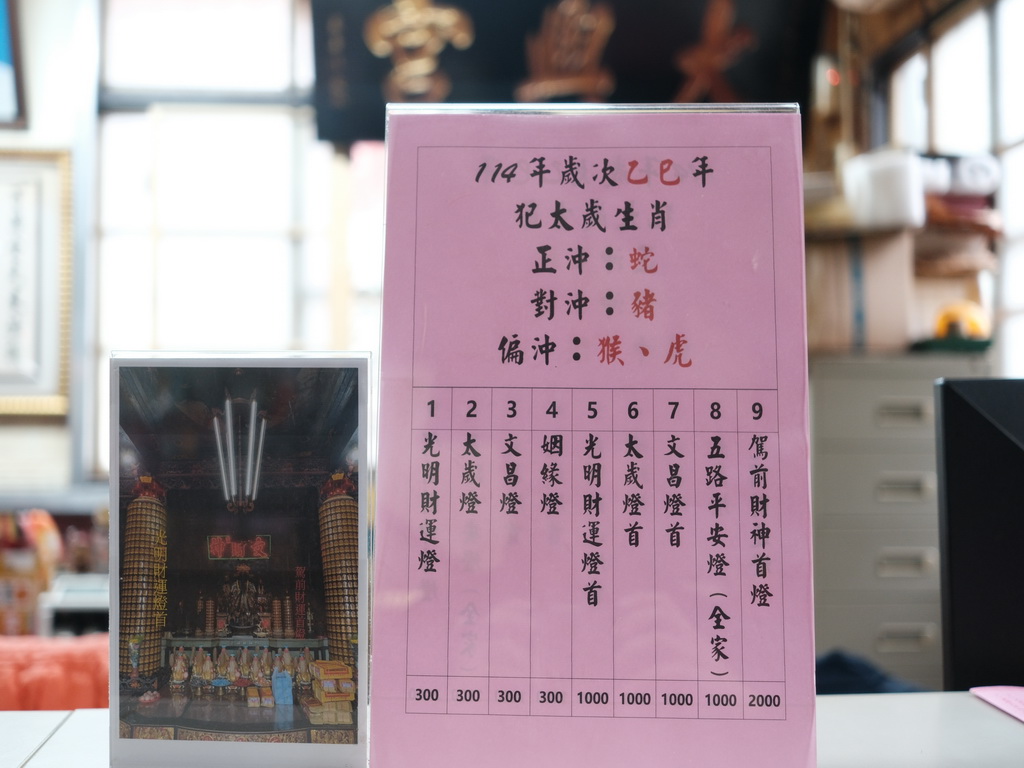 大興宮
114年歲次乙巳年
犯太歲生肖
正沖：蛇
對沖：豬
偏沖：猴、虎
1 2 3 4 5 6 7 8 9
光明財運燈
太歲燈
文昌燈
姻緣燈
光明財運燈首
太歲燈首
文昌燈首
五路平安燈（全家）
駕前財神首燈
300 300 300 300 1000 1000 1000 1000 2000
光明財運燈首